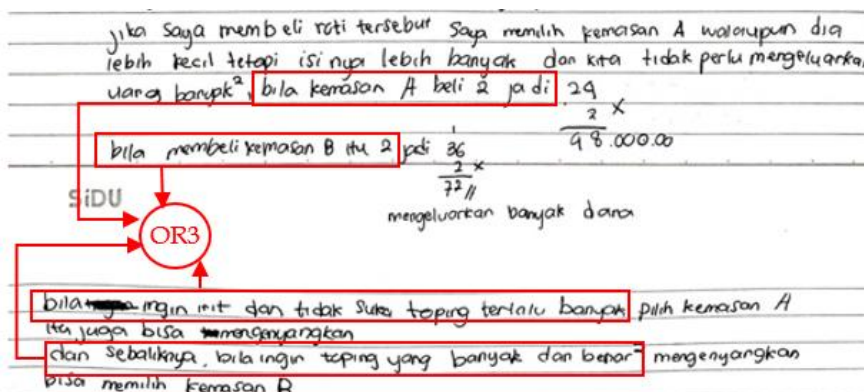 jika saya membeli roti tersebut saya memilih kemasan A walaupun dia
lebih kecil tetapi isi nya lebih banyak dan kita tidak perlu mengeluarkan
uang banyak², bila kemasan A beli 2 jadi 24
2 x
48.000.00
bila membeli kemasan B itu 2 jadi 36
2 x
72 //
SiDU
mengeluarkan banyak dana
OR3
bila ingin irit dan tidak suka toping terlalu banyak pilih kemasan A
itu juga bisa mengenyangkan
dan sebaliknya, bila ingin toping yang banyak dan benar² mengenyangkan
bisa memilih kemasan B